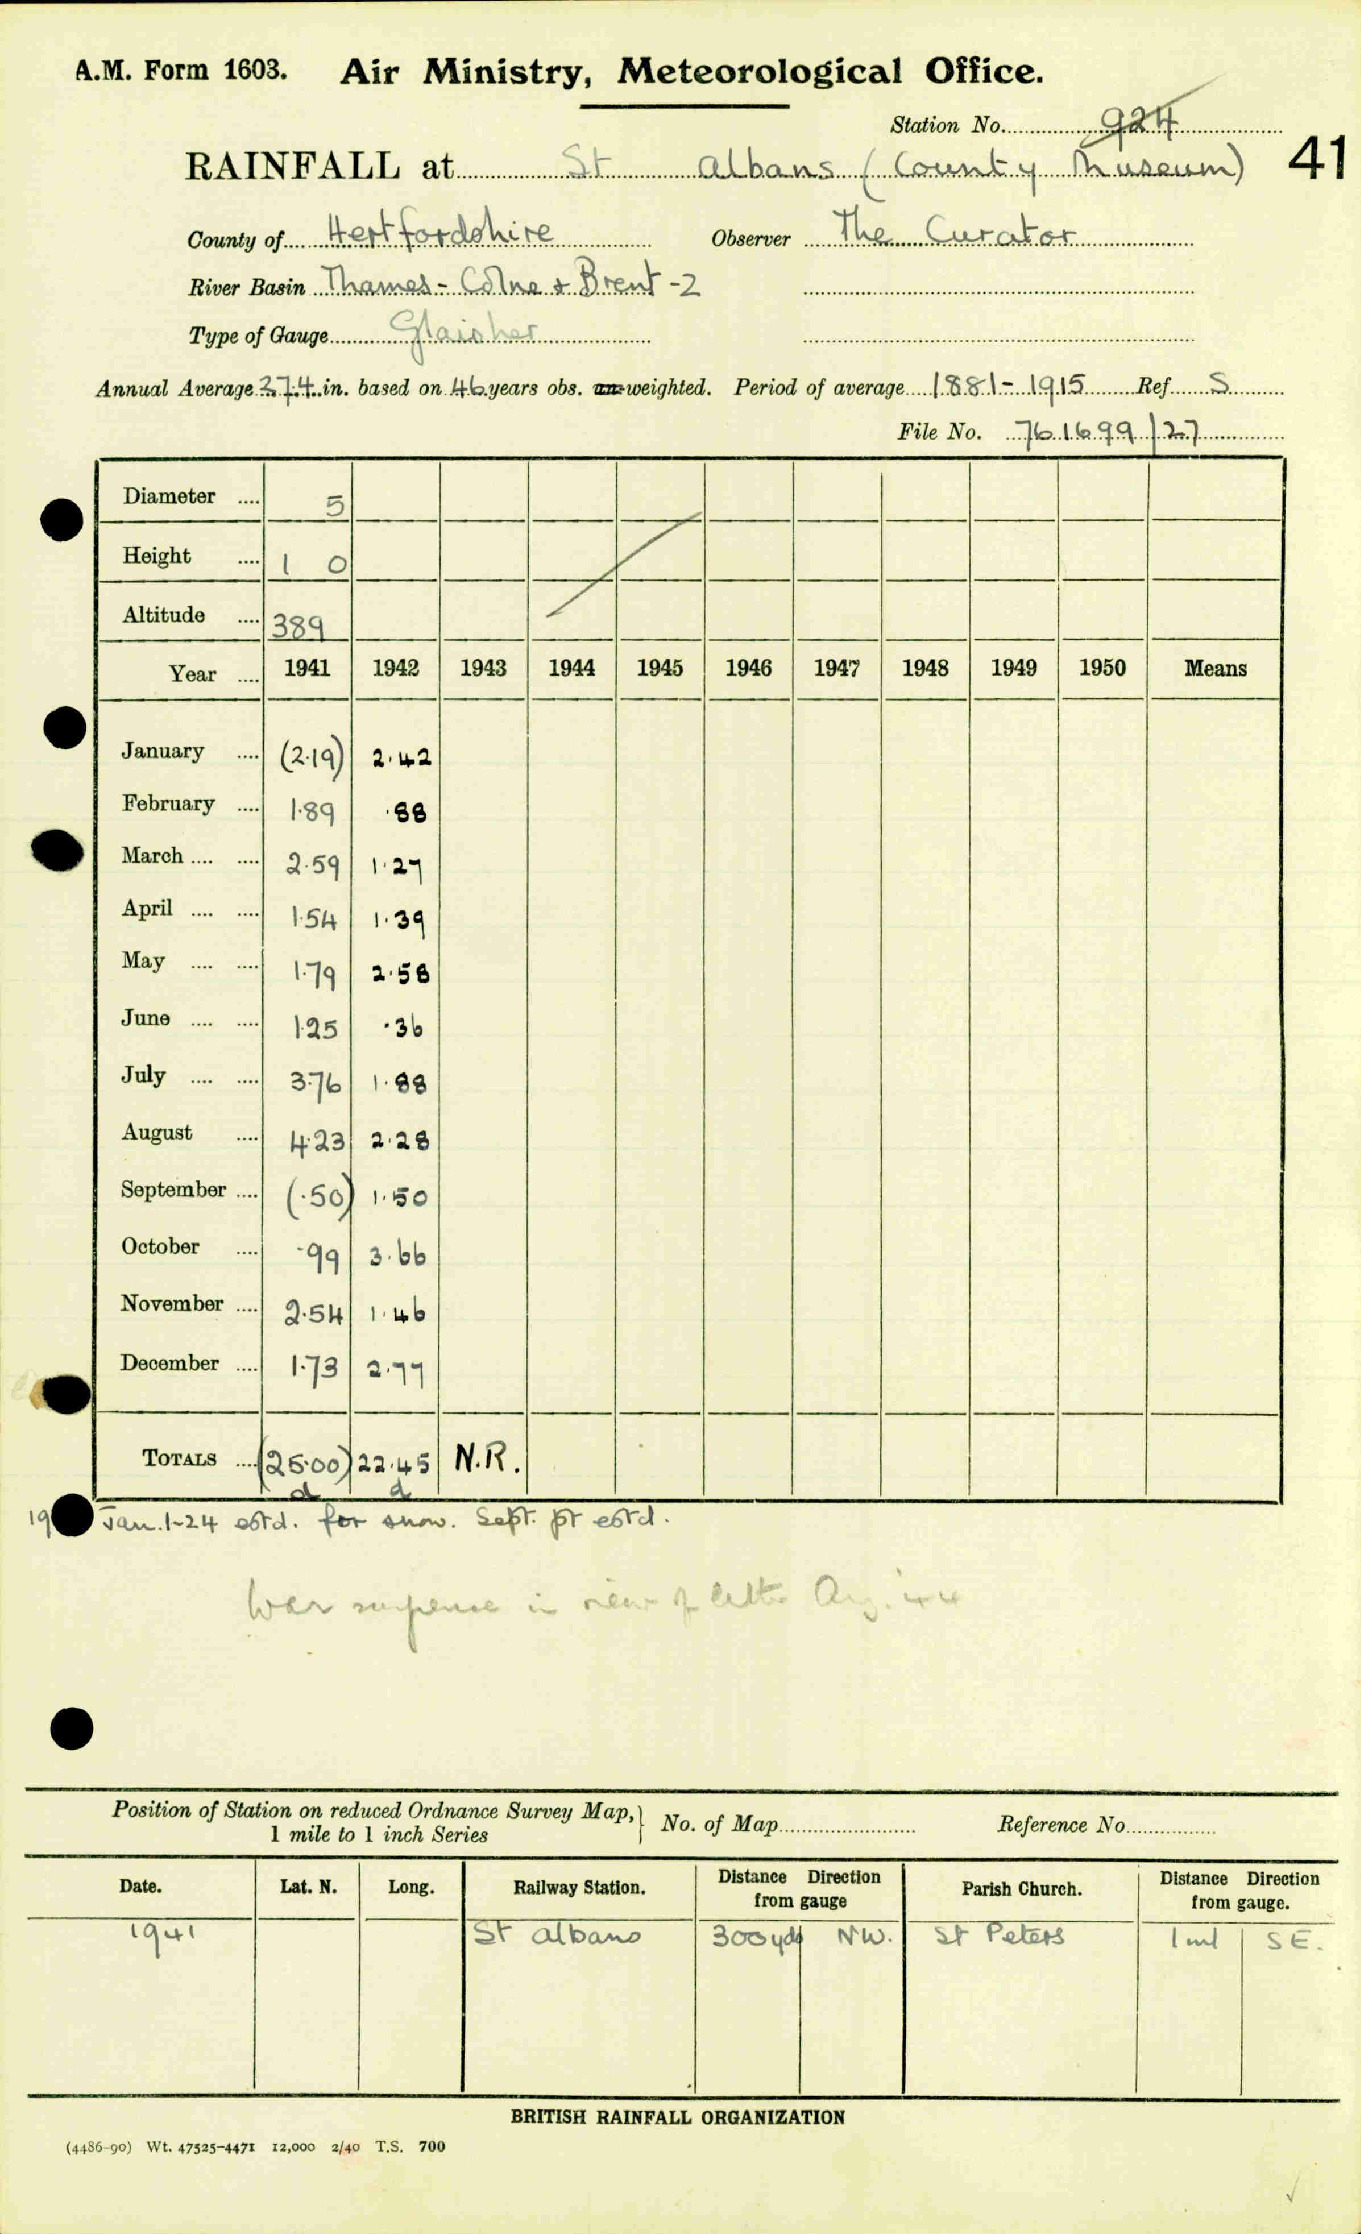 A.M. Form 1603. Air Ministry, Meteorological Office.
Station No. 924
RAINFALL at St Albans (County Museum) 41
County of Hertfordshire Observer The Curator
River Basin Thames - Colne & Brent -2
Type of Gauge Glaisher
Annual Average 27.4 in. based on 46 years obs. un-weighted. Period of average 1881-1915 Ref. S
File No. 761699/27
Diameter .... 5
Height .... 1 0
Altitude .... 389
Year .... 1941 1942 1943 1944 1945 1946 1947 1948 1949 1950 Means
January .... (2.19) 2.42
February .... 1.89 .88
March .... .... 2.59 1.27
April .... .... 1.54 1.39
May .... .... 1.79 2.58
June .... .... 1.25 .36
July .... .... 3.76 1.88
August .... 4.23 2.28
September .... (.50) 1.50
October .... .99 3.66
November .... 2.54 1.46
December .... 1.73 2.77
TOTALS .... (25.00) 22.45 N.R.
d d
19 Jan. 1-24 estd. for snow. Sept. pt estd.
War suspense in view of letter Aug. '44
Position of Station on reduced Ordnance Survey Map, } No. of Map Reference No.
1 mile to 1 inch Series
Date. Lat. N. Long. Railway Station. Distance Direction from gauge Parish Church. Distance Direction from gauge.
1941 St Albans 300 yds NW. St Peters 1 ml SE.
BRITISH RAINFALL ORGANIZATION
(4486-90) Wt. 47525-4471 12,000 2/40 T.S. 700